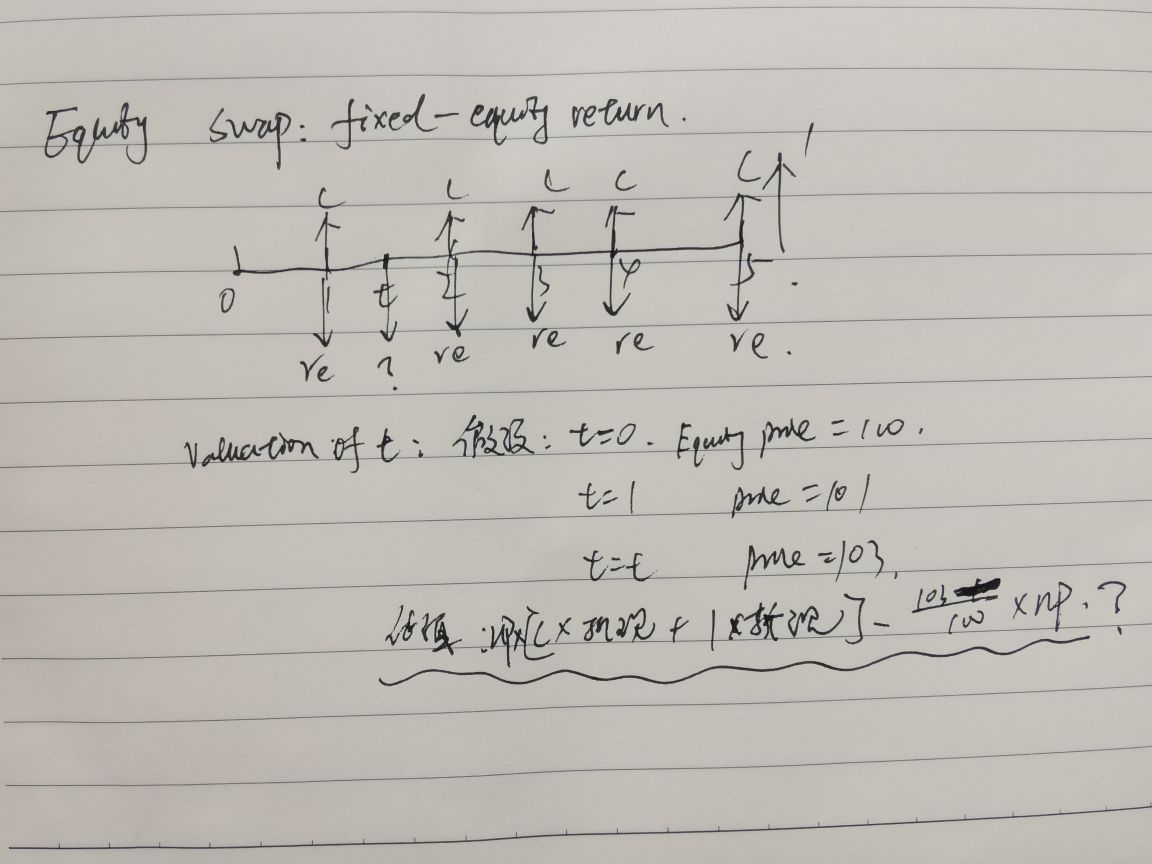 Equity swap: fixed-equity return.
C C C C C 1
0 1 t 2 3 4 5
re ? re re re re.
Valuation of t: 假设: t=0. Equity price = 100.
t=1 price = 101
t=t price = 103.
估值: NP×[C×折现 + 1×折现] - 103/100 × NP.?